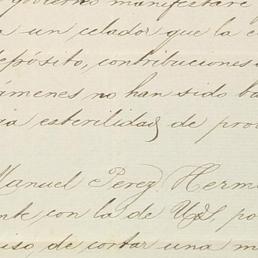 gobierno manifestare
un celador que la e
depósito, contribuciones
ámenes no han sido ba
ia esterilidad de pro
Manuel Perez Herm
nte con la de US, po
iso, de cortar una m